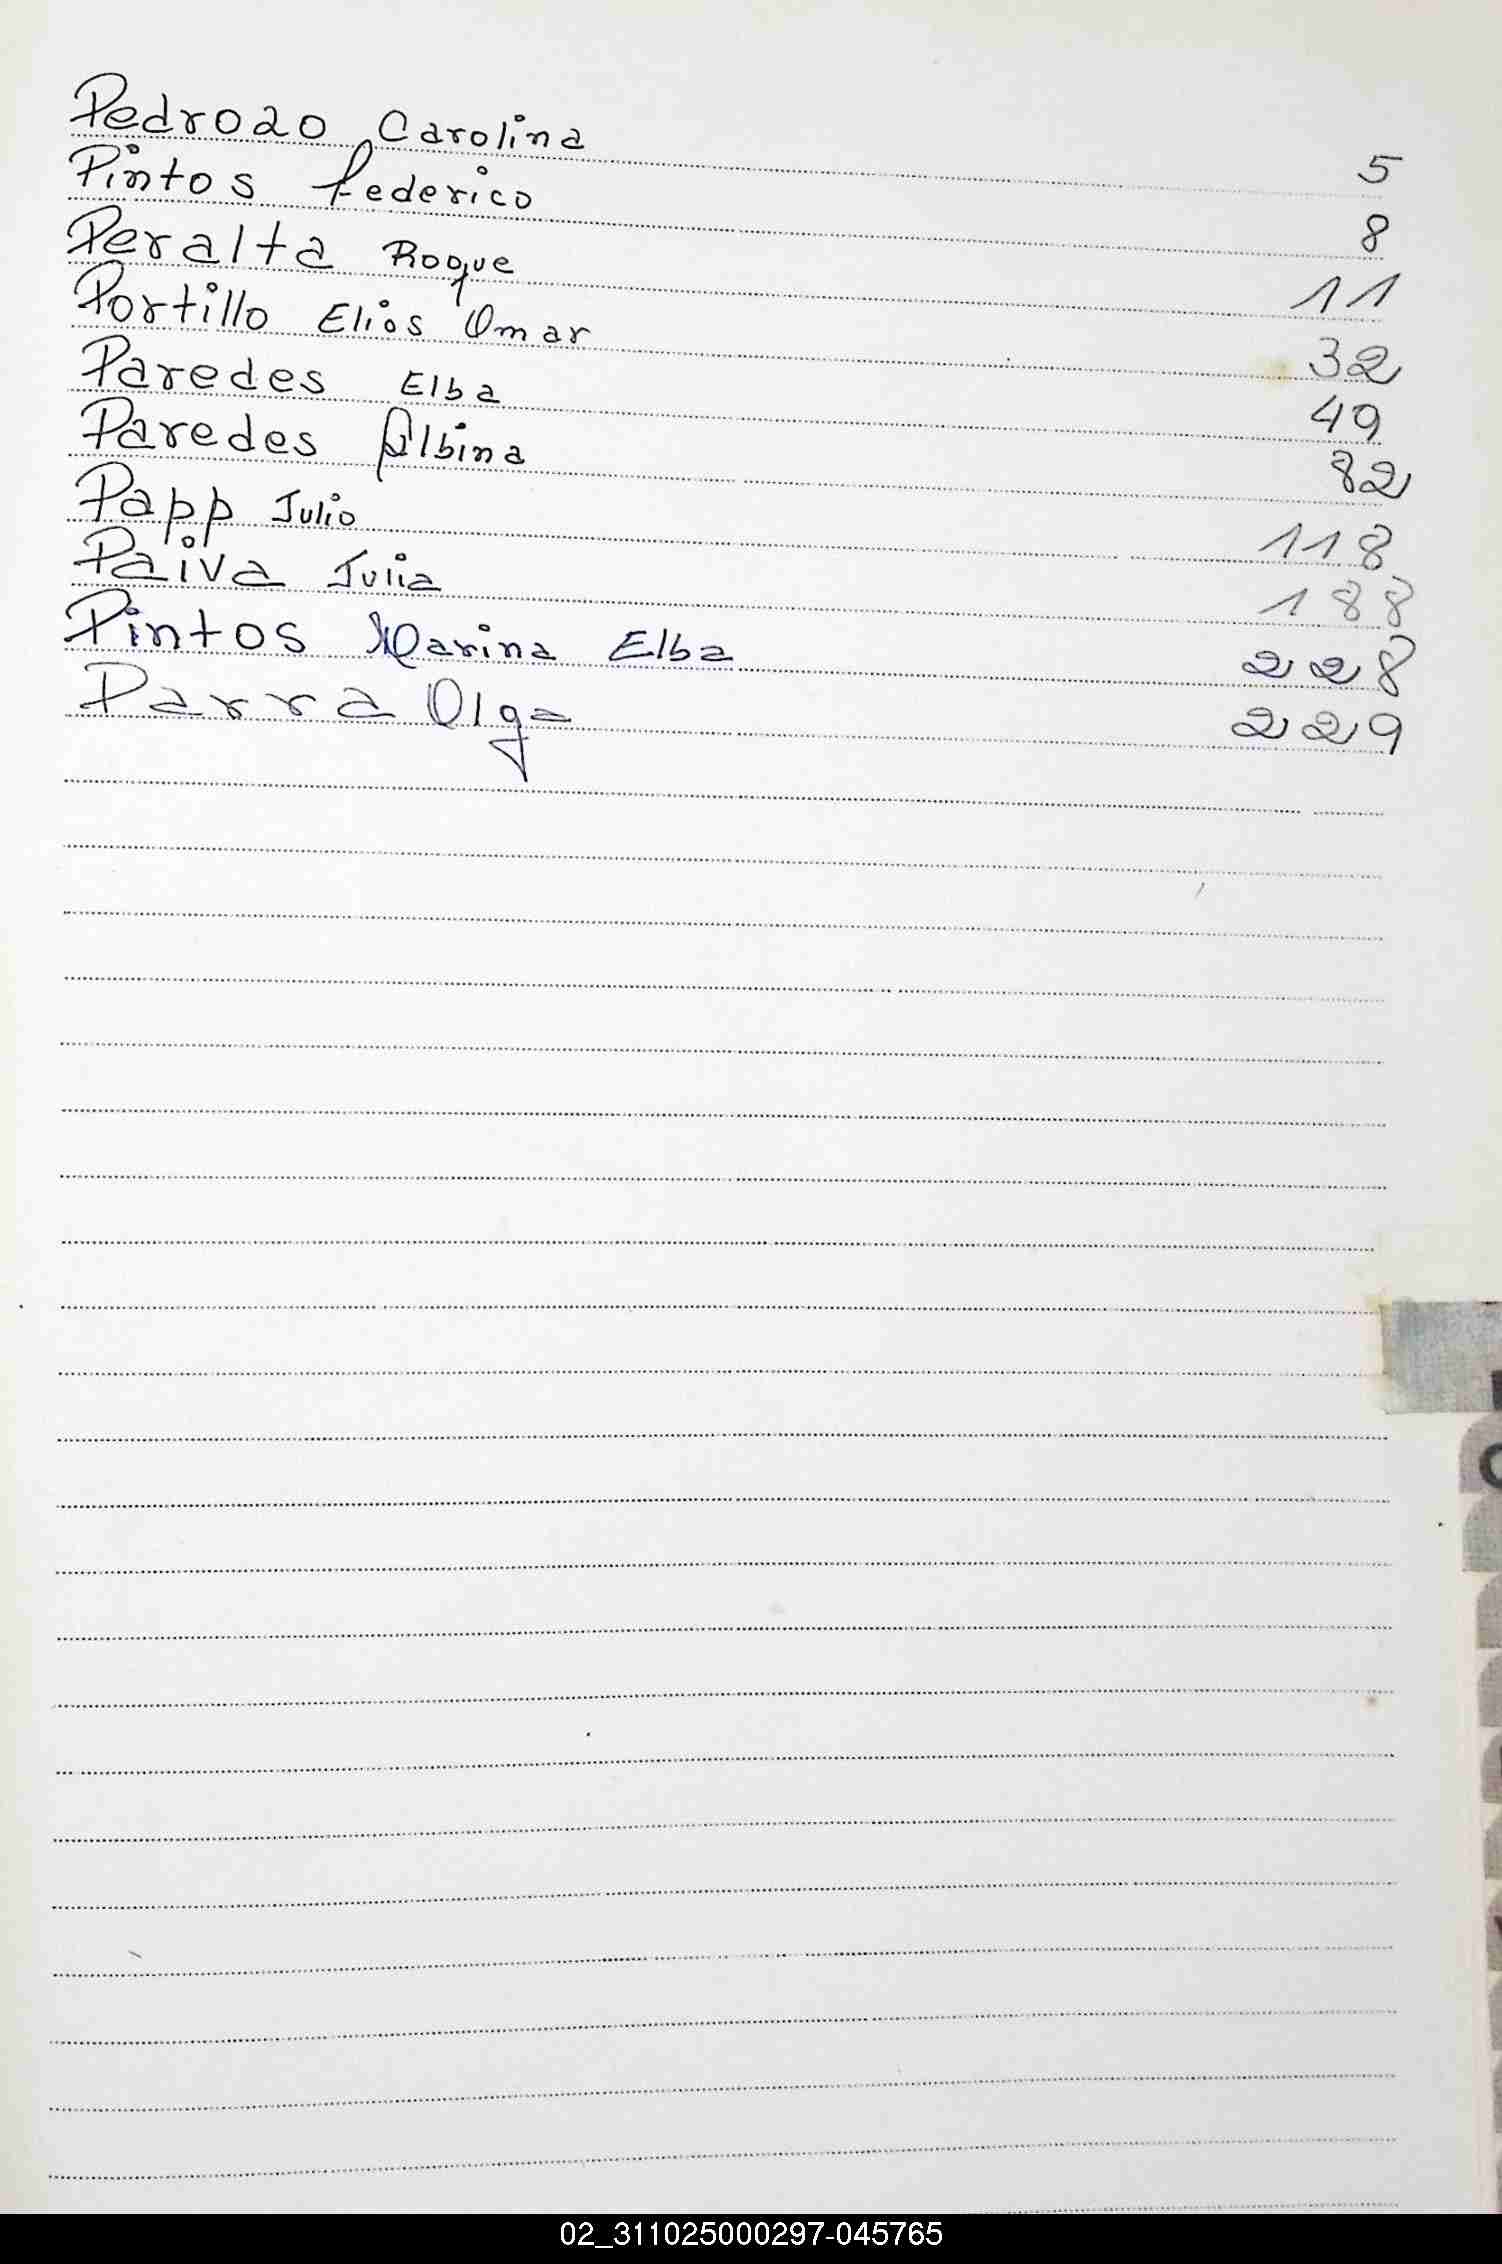 Pedrozo Carolina 5
Pintos Federico 8
Peralta Roque 11
Portillo Elios Omar 32
Paredes Elba 49
Paredes Albina 82
Papp Julio 118
Paiva Julia 188
Pintos Marina Elba 228
Parra Olga 229
02_311025000297-045765